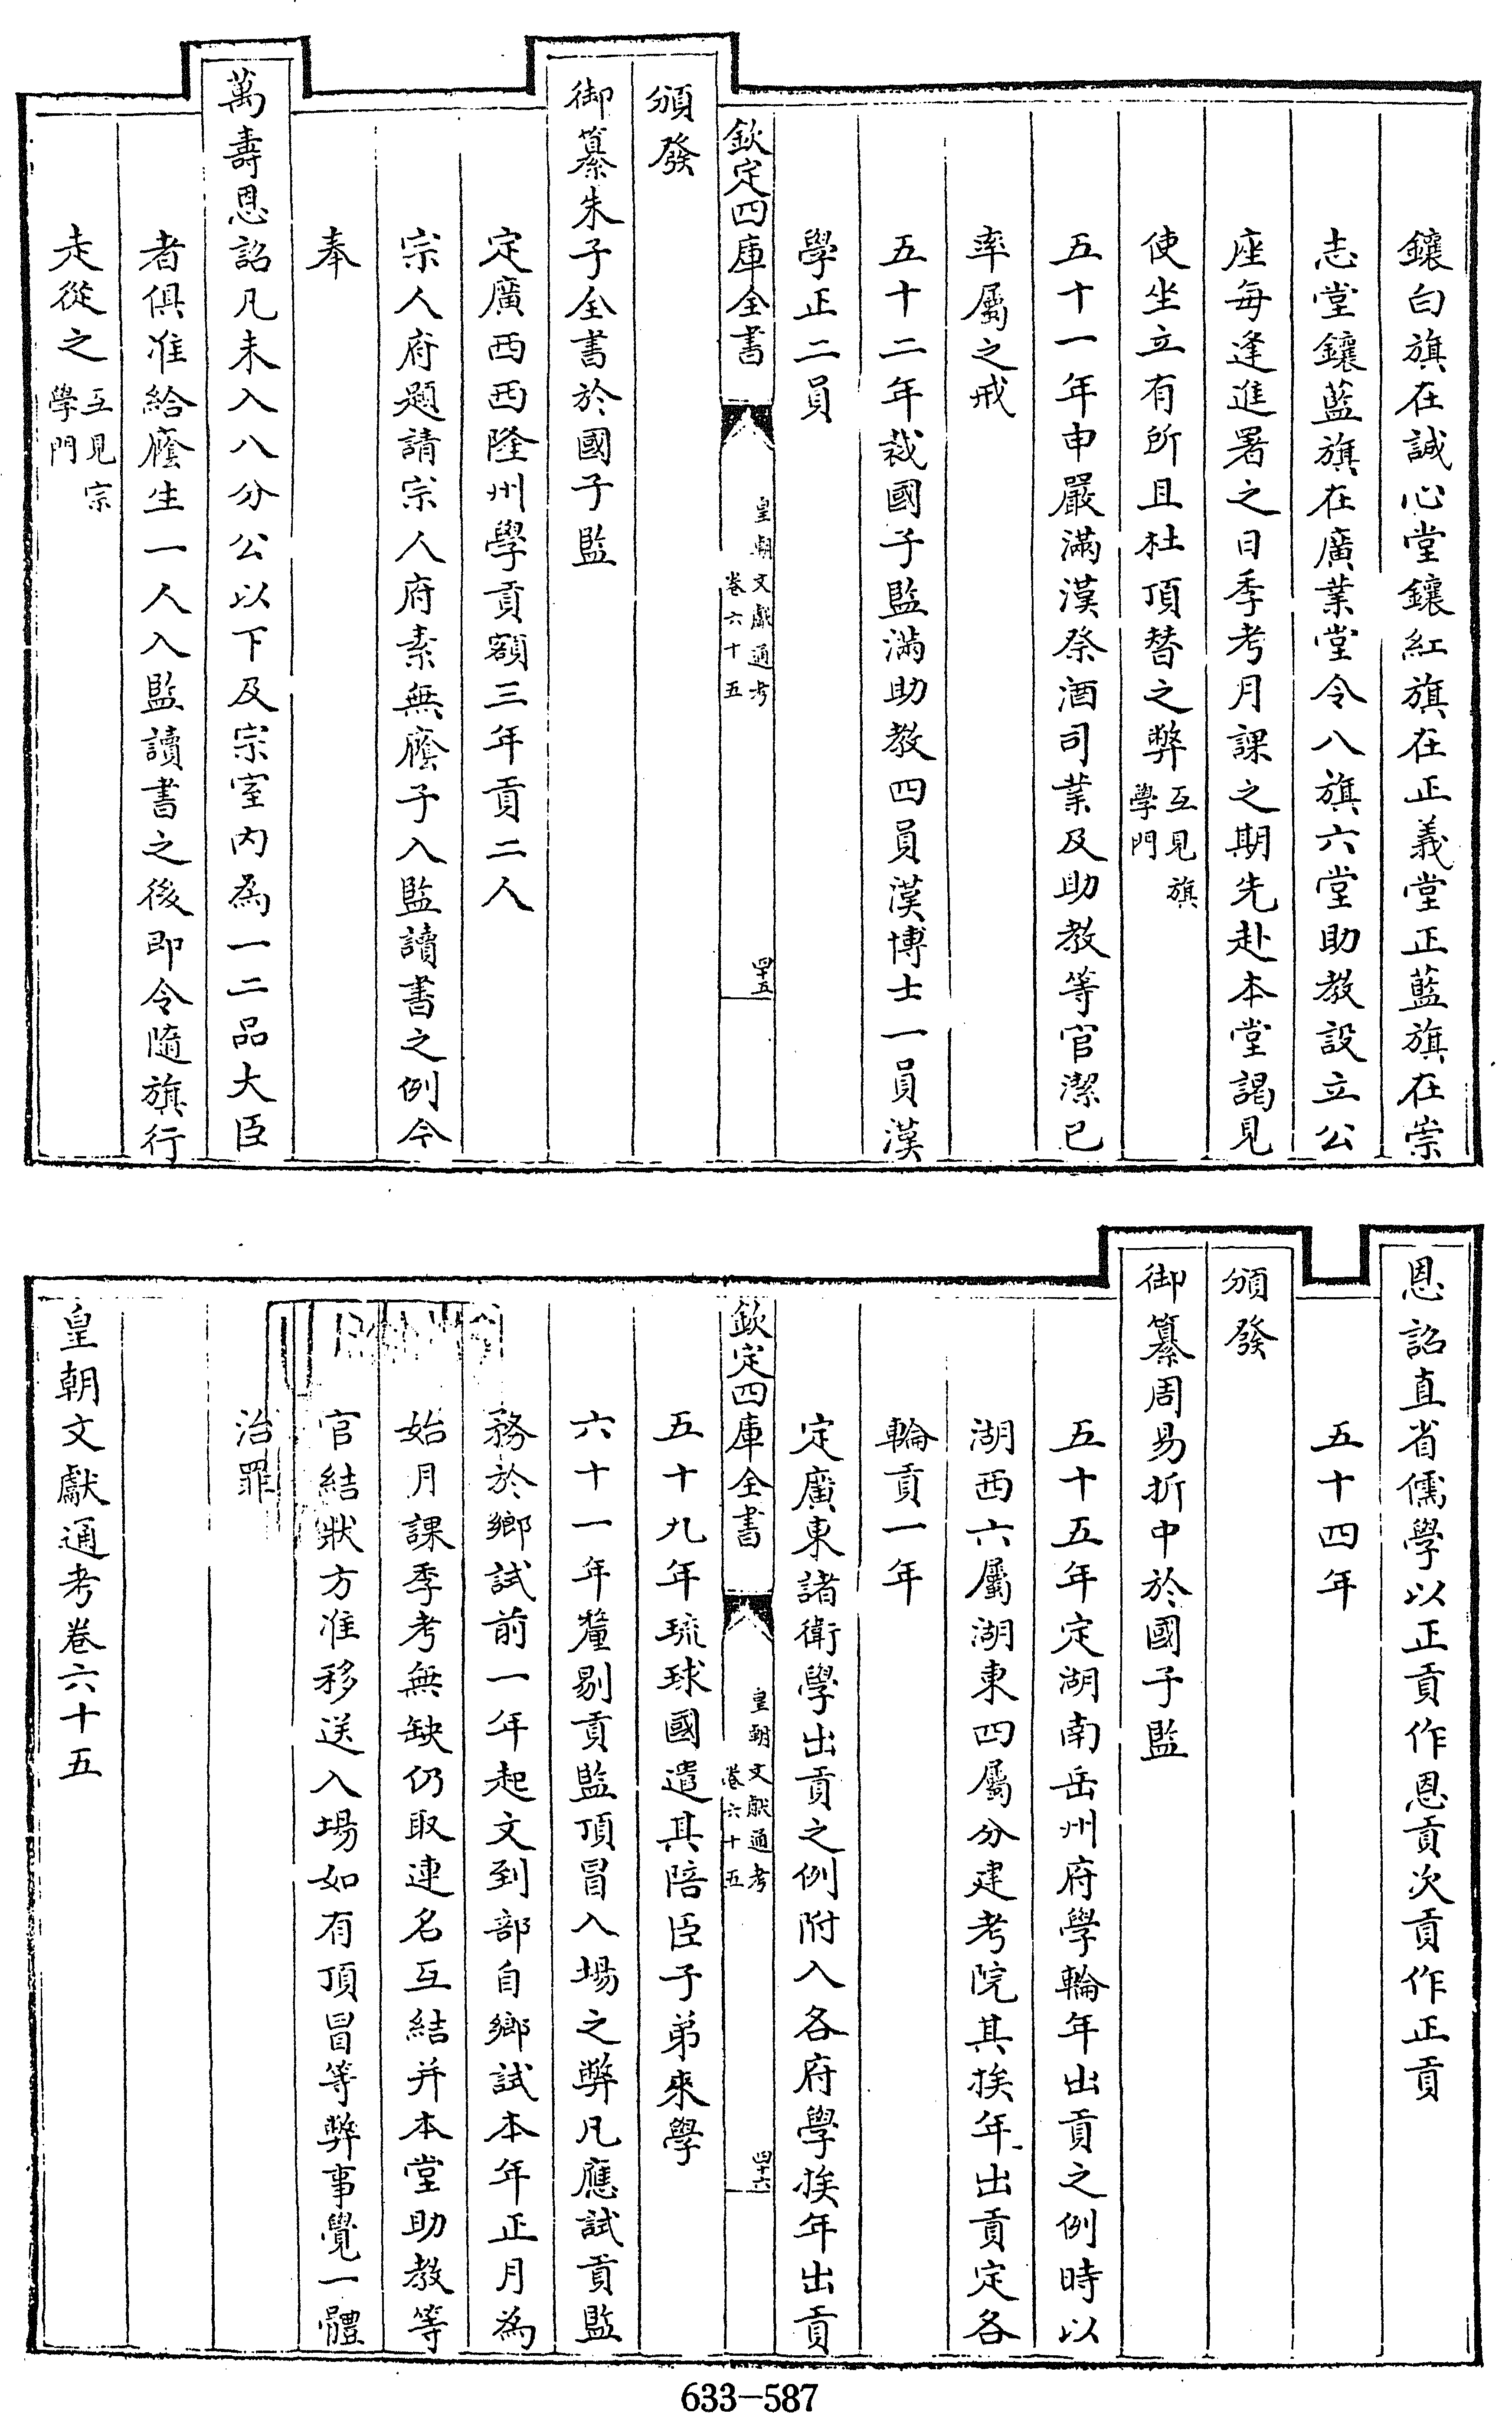 鑲白旗在誠心堂鑲紅旗在正義堂正藍旗在崇
志堂鑲藍旗在廣業堂令八旗六堂助教設立公
座每逢進署之日季考月課之期先赴本堂謁見
使坐立有所且杜頂替之弊互見旗學門
五十一年申嚴滿漢祭酒司業及助教等官潔已
率屬之戒
五十二年裁國子監滿助教四員漢博士一員漢
學正二員
欽定四庫全書
皇朝文獻通考
卷六十五
四十五
頒發
御纂朱子全書於國子監
定廣西西隆州學貢額三年貢二人
宗人府題請宗人府素無廕子入監讀書之例今
奉
萬壽恩詔凡未入八分公以下及宗室內為一二品大臣
者俱准給廕生一人入監讀書之後即令隨旗行
走從之互見宗學門
恩詔直省儒學以正貢作恩貢次貢作正貢
五十四年
頒發
御纂周易折中於國子監
五十五年定湖南岳州府學輪年出貢之例時以
湖西六屬湖東四屬分建考院其挨年出貢定各
輪貢一年
定廣東諸衛學出貢之例附入各府學挨年出貢
欽定四庫全書
皇朝文獻通考
卷六十五
四十六
五十九年琉球國遣其陪臣子弟來學
六十一年釐剔貢監頂冒入場之弊凡應試貢監
務於鄉試前一年起文到部自鄉試本年正月為
始月課季考無缺仍取連名互結并本堂助教等
官結狀方准移送入場如有頂冒等弊事覺一體
治罪
皇朝文獻通考卷六十五
633-587